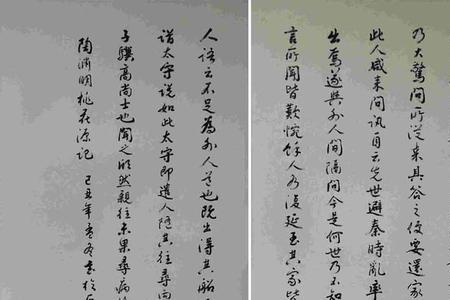 乃大驚問所從来具答之便要還家
此人咸来問訊自云先世避秦時亂率
出焉遂與外人間隔問今是何世乃不知
言所聞皆歎惋餘人各復延至其家皆
人語云不足為外人道也既出得其船
詣太守說如此太守即遣人隨其往尋向
子驥高尚士也聞之欣然親往未果尋病
陶淵明桃花源記 己丑年冬書於